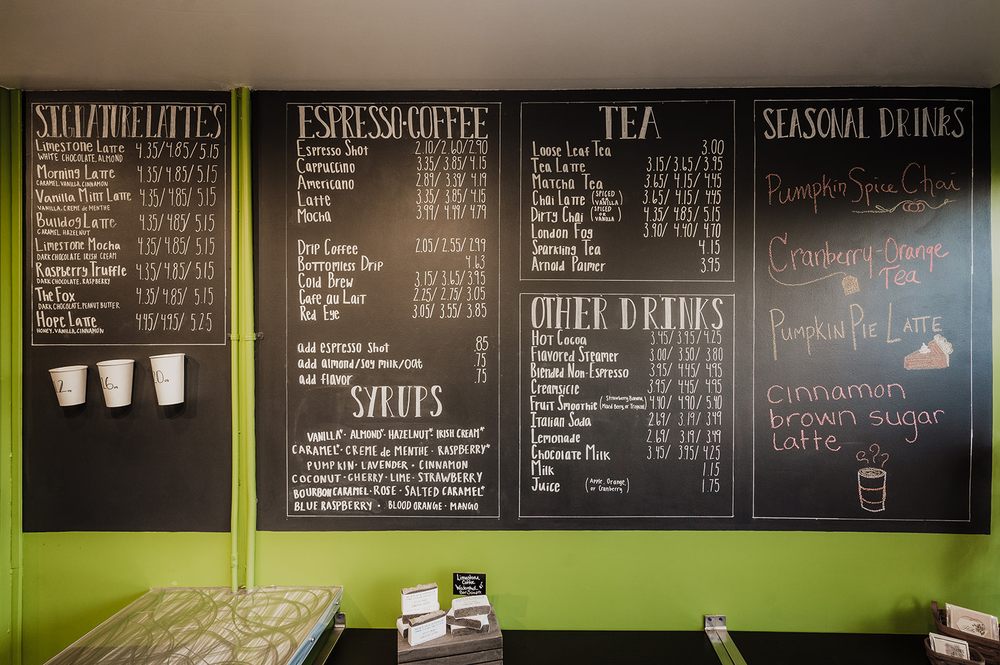 SIGNATURE LATTES
LIMESTONE LATTE 4.35/4.85/5.15
WHITE CHOCOLATE, ALMOND
MORNING LATTE 4.35/4.85/5.15
CARAMEL, VANILLA, CINNAMON
VANILLA MINT LATTE 4.35/4.85/5.15
VANILLA, CREME de MENTHE
BULLDOG LATTE 4.35/4.85/5.15
CARAMEL, HAZELNUT
LIMESTONE MOCHA 4.35/4.85/5.15
DARK CHOCOLATE, IRISH CREAM
RASPBERRY TRUFFLE 4.35/4.85/5.15
DARK CHOCOLATE, RASPBERRY
THE FOX 4.35/4.85/5.15
DARK CHOCOLATE, PEANUT BUTTER
HOPE LATTE 4.45/4.95/5.25
HONEY, VANILLA, CINNAMON
ESPRESSO·COFFEE
Espresso Shot 2.10/2.60/2.90
Cappuccino 3.35/3.85/4.15
Americano
Latte 3.35/3.85/4.15
Mocha 3.99/4.49/4.79
Drip Coffee 2.05/2.55/2.99
Bottomless Drip 4.63
Cold Brew 3.15/3.65/3.95
Cafe au Lait 2.25/2.75/3.05
Red Eye 3.05/3.55/3.85
add espresso shot .85
add almond/soy milk/oat .75
add flavor .75
SYRUPS
VANILLA* · ALMOND* · HAZELNUT* · IRISH CREAM*
CARAMEL* · CREME de MENTHE · RASPBERRY*
PUMPKIN · LAVENDER · CINNAMON
COCONUT · CHERRY · LIME · STRAWBERRY
BOURBON CARAMEL · ROSE · SALTED CARAMEL*
BLUE RASPBERRY · BLOOD ORANGE · MANGO
TEA
Loose Leaf Tea 3.00
Tea Latte 3.15/3.65/3.95
Matcha Tea 3.65/4.15/4.45
Chai Latte (SPICED or VANILLA) 3.65/4.15/4.45
Dirty Chai (SPICED or VANILLA) 4.35/4.85/5.15
London Fog 3.90/4.40/4.70
Sparkling Tea 4.15
Arnold Palmer 3.95
OTHER DRINKS
Hot Cocoa 3.45/3.95/4.25
Flavored Steamer 3.00/3.50/3.80
Blended Non-Espresso 3.95/4.45/4.95
Creamsicle 3.95/4.45/4.95
Fruit Smoothie (Strawberry Banana, Mixed Berry, or Tropical) 4.40/4.90/5.40
Italian Soda 2.69/3.19/3.49
Lemonade 2.69/3.19/3.49
Chocolate Milk 3.45/3.95/4.25
Milk 1.15
Juice (Apple, Orange, or Cranberry) 1.75
SEASONAL DRINKS
Pumpkin Spice Chai
Cranberry-Orange
Tea
Pumpkin Pie Latte
cinnamon
brown sugar
latte
Limestone
Coffee